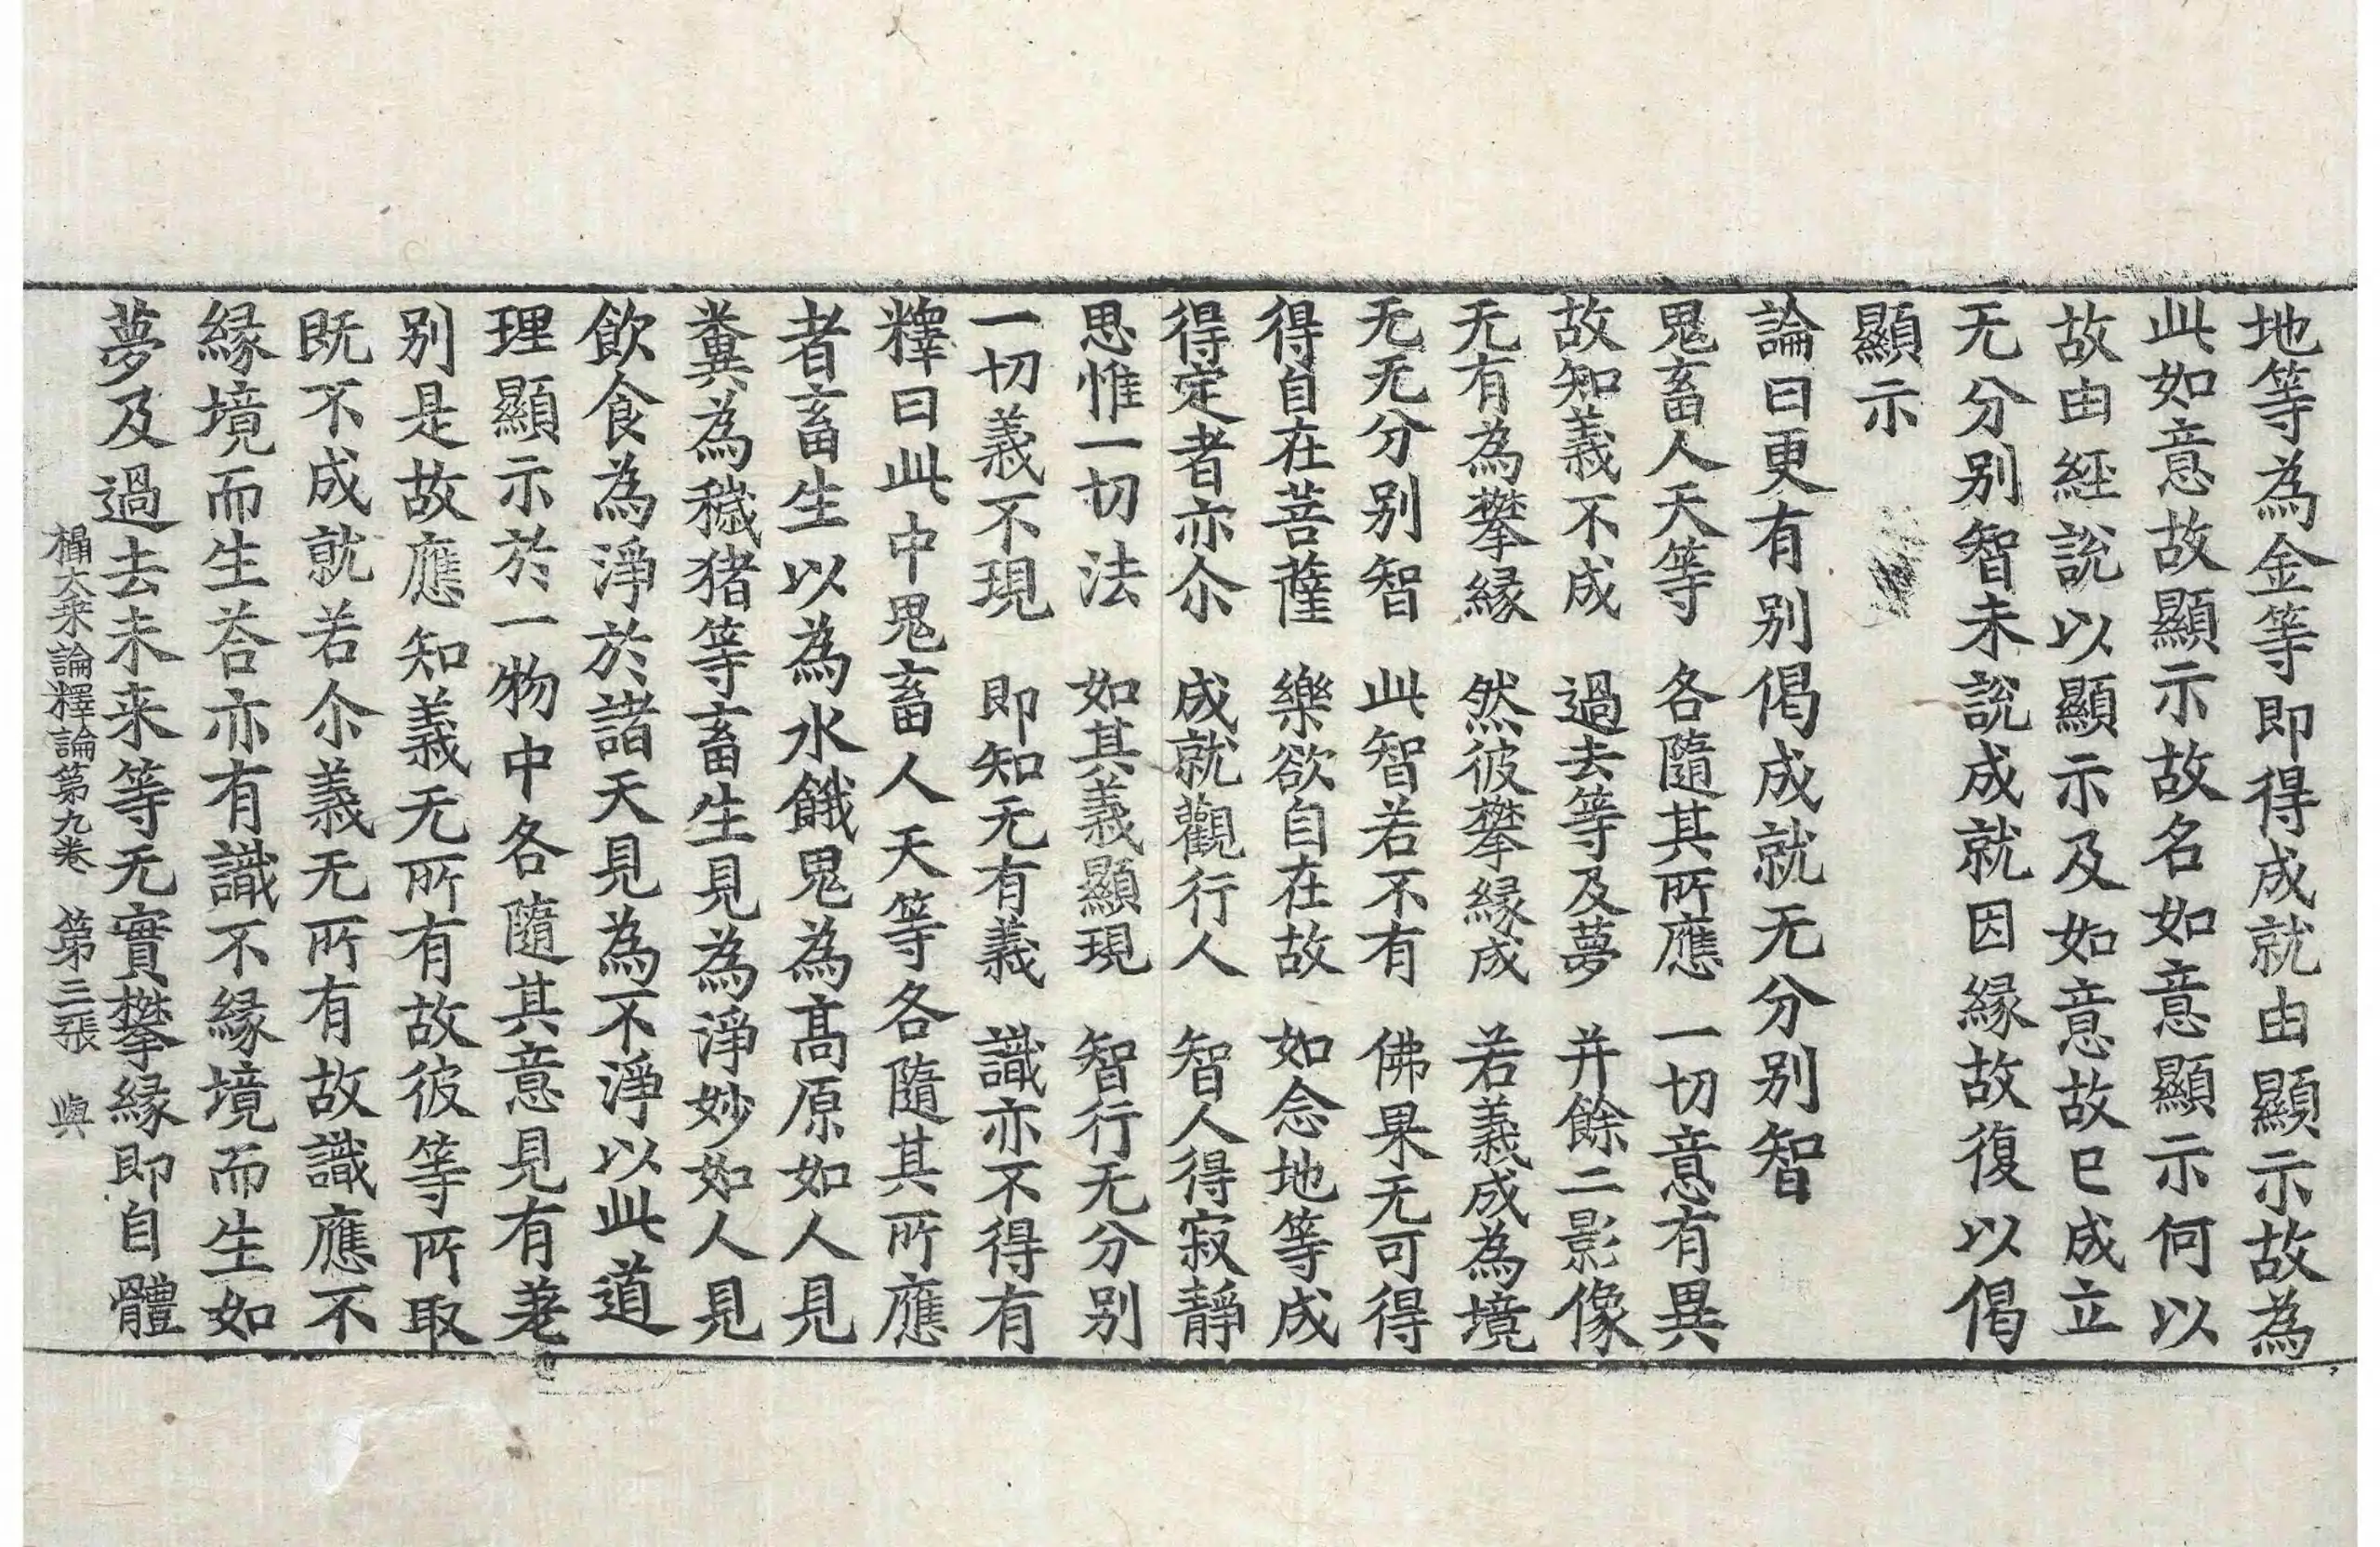 地等為金等即得成就由顯示故為
此如意故顯示故名如意顯示何以
故由經說以顯示及如意故已成立
无分别智未說成就因緣故復以偈
顯示
論曰更有别偈成就无分别智
鬼畜人天等　各隨其所應　一切意有異
故知義不成　過去等及夢　并餘二影像
无有為攀緣　然彼攀緣成　若義成為境
无无分别智　此智若不有　佛果无可得
得自在菩薩　樂欲自在故　如念地等成
得定者亦尒　成就觀行人　智人得寂靜
思惟一切法　如其義顯現　智行无分别
一切義不現　即知无有義　識亦不得有
釋曰此中鬼畜人天等各隨其所應
者畜生以為水餓鬼為髙原如人見
糞為穢猪等畜生見為淨妙如人見
飲食為淨於諸天見為不淨以此道
理顯示於一物中各隨其意見有差
别是故應知義无所有故彼等所取
既不成就若尒義无所有故識應不
緣境而生荅亦有識不緣境而生如
夢及過去未来等无實攀緣即自體
攝大乗論釋論第九卷　第三張　與